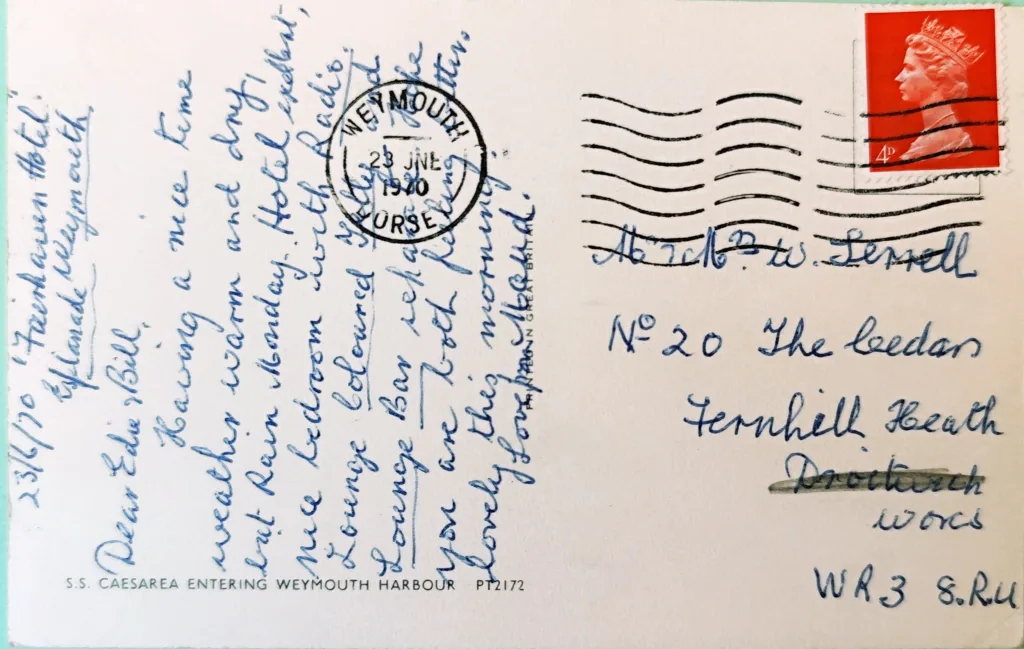 23/6/70 "Fairhaven Hotel"
Esplanade Weymouth
Dear Edie & Bill,
Having a nice time
weather warm and dry,
but Rain Monday. Hotel excellent,
nice bedroom with Radio.
Lounge Coloured Telly and
Lounge Bar
you are both feeling
lovely this morning.
Love from Maud.
WEYMOUTH
23 JNE
1970
DORSET
4D
Mr & Mrs W. Terrell
No 20 The Cedars
Fernhill Heath
Droitwich
Worcs
WR3 8.R.U
PRINTED IN GREAT BRITAIN
S.S. CAESAREA ENTERING WEYMOUTH HARBOUR PT2172